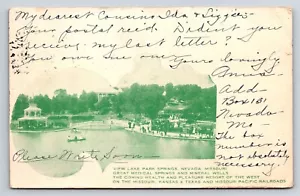 My dearest Cousins Ida & Lizzie:
Your postal recd. Did'ent you
receive my last letter?
We are one your lovingly
Anna
Add-
Box 181
Nevada
Mo
Box number
is not
absolutely
necessary.
Please Write Soon
VIEW LAKE PARK SPRINGS, NEVADA, MISSOURI.
GREAT MEDICAL SPRINGS AND MINERAL WELLS
THE COMING HEALTH AND PLEASURE RESORT OF THE WEST
ON THE MISSOURI, KANSAS & TEXAS AND MISSOURI PACIFIC RAILROADS